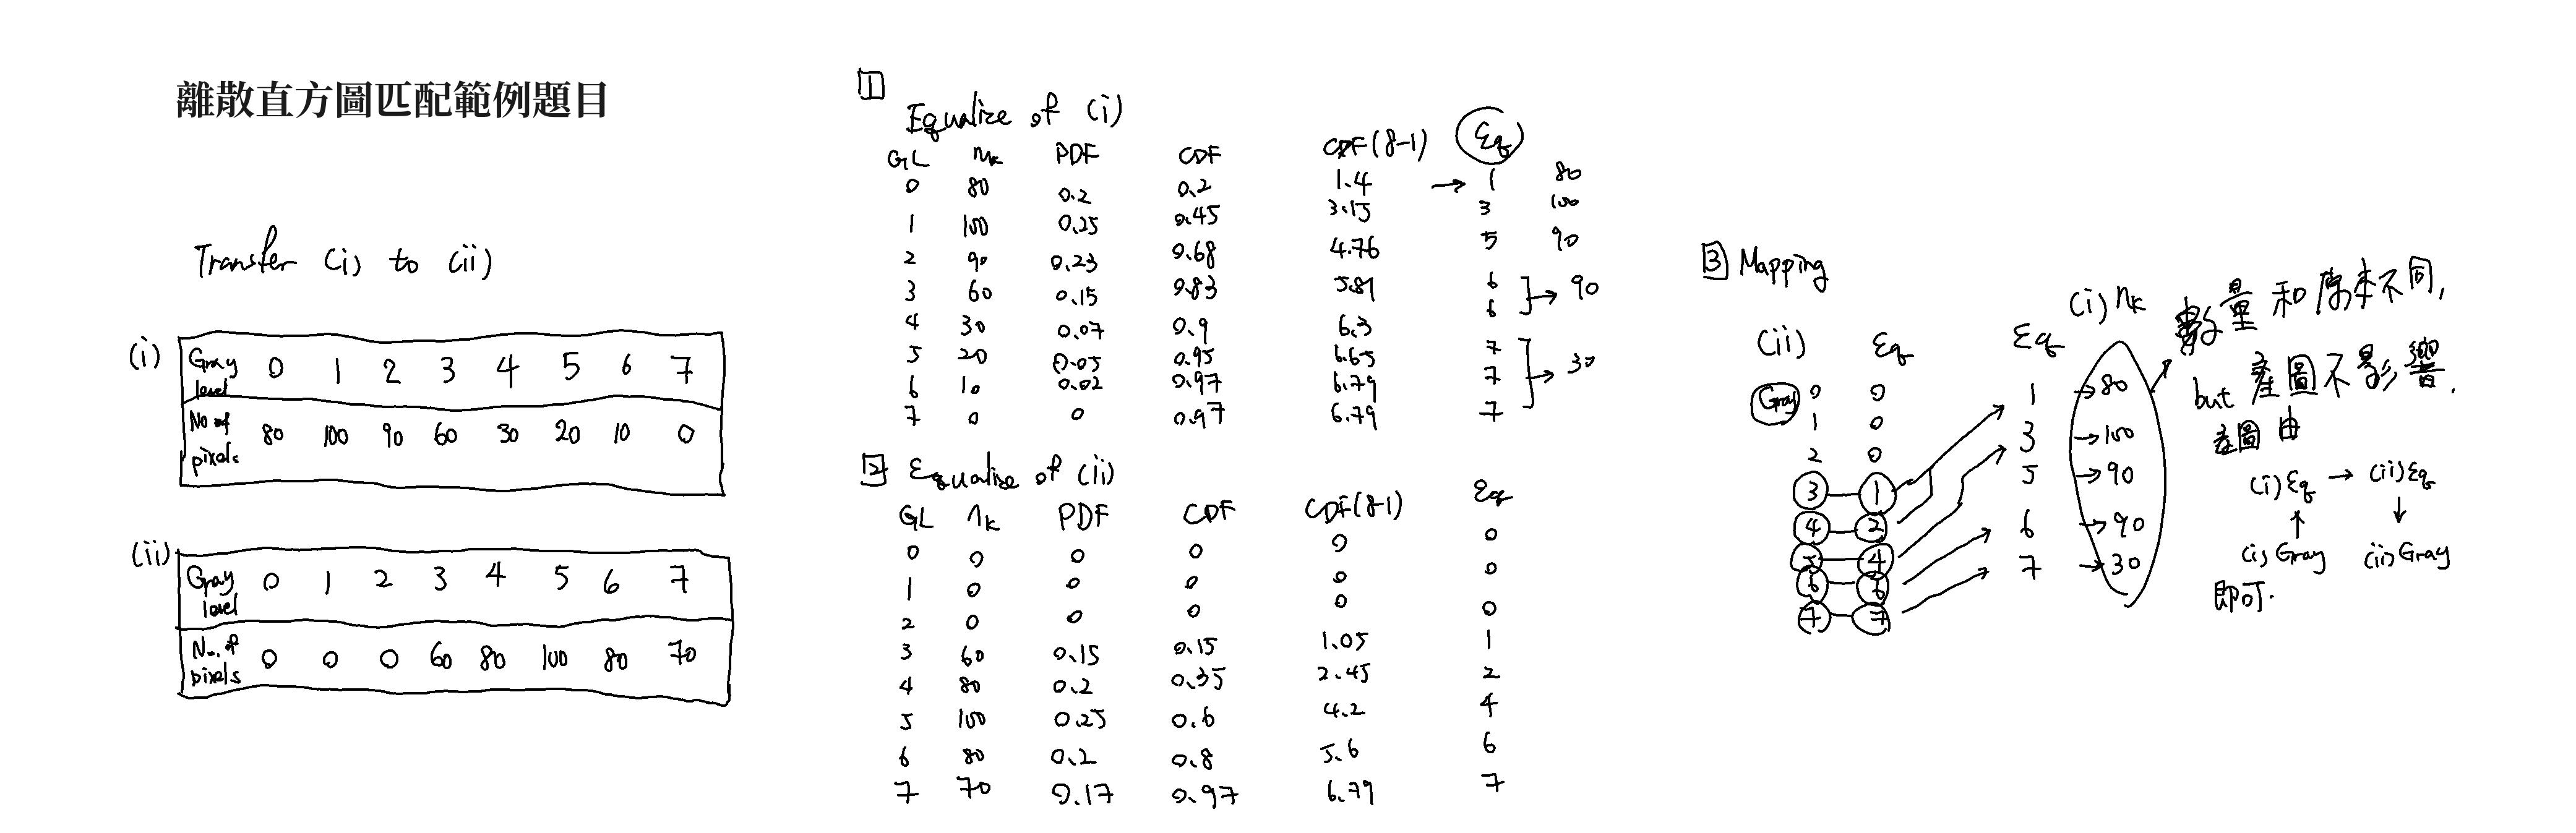 離散直方圖匹配範例題目
Transfer (i) to (ii)
(i)
Gray level 0 1 2 3 4 5 6 7
No of pixels 80 100 90 60 30 20 10 0
(ii)
Gray level 0 1 2 3 4 5 6 7
No. of pixels 0 0 0 60 80 100 80 70
1
Equalize of (i)
GL nk PDF CDF CDF(8-1) Eq
0 80 0.2 0.2 1.4 → 1 80
1 100 0.25 0.45 3.15 3 100
2 90 0.23 0.68 4.76 5 90
3 60 0.15 0.83 5.81 6
4 30 0.07 0.9 6.3 6
→ 90
5 20 0.05 0.95 6.65 7
6 10 0.02 0.97 6.79 7
7 0 0 0.97 6.79 7
→ 30
2 Equalize of (ii)
GL nk PDF CDF CDF(8-1) Eq
0 0 0 0 0 0
1 0 0 0 0 0
2 0 0 0 0 0
3 60 0.15 0.15 1.05 1
4 80 0.2 0.35 2.45 2
5 100 0.25 0.6 4.2 4
6 80 0.2 0.8 5.6 6
7 70 0.17 0.97 6.79 7
3 Mapping
(ii) Eq
Gray 0 0
1 0
2 0
3 1
4 2
5 4
6 6
7 7
Eq (i) nk
1 → 80
3 → 100
5 → 90
6 → 90
7 → 30
數量和原本不同,
but 產圖不影響.
產圖由
(i) Eq → (ii) Eq
↑ ↓
(i) Gray (ii) Gray
即可.